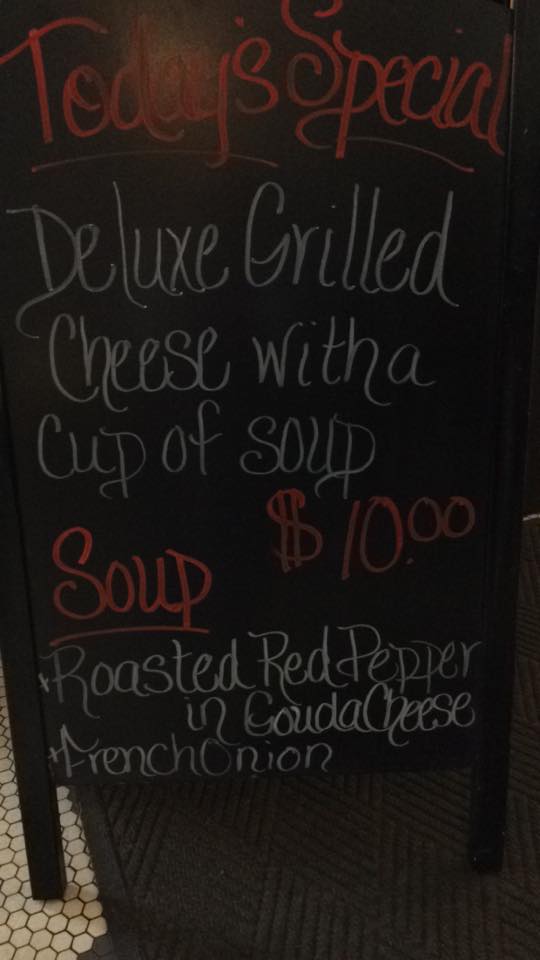 Today's Special
Deluxe Grilled
Cheese with a
Cup of soup
$10.00
Soup
*Roasted Red Pepper
in Gouda Cheese
*French Onion